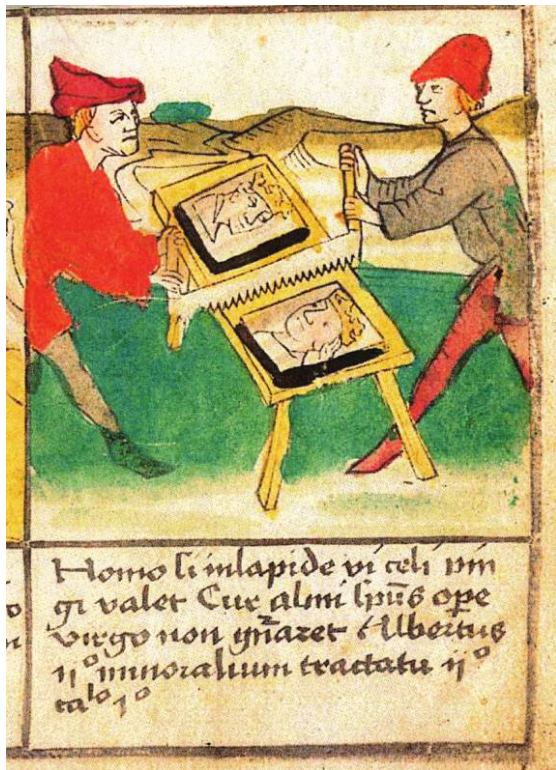 Homo si in lapide vi celi pin
gi valet Cur almi spūs ope
virgo non gn̄aret Albertus
ijº mineralium tractatu ijº
ca⁽ˡᵒ⁾ jº